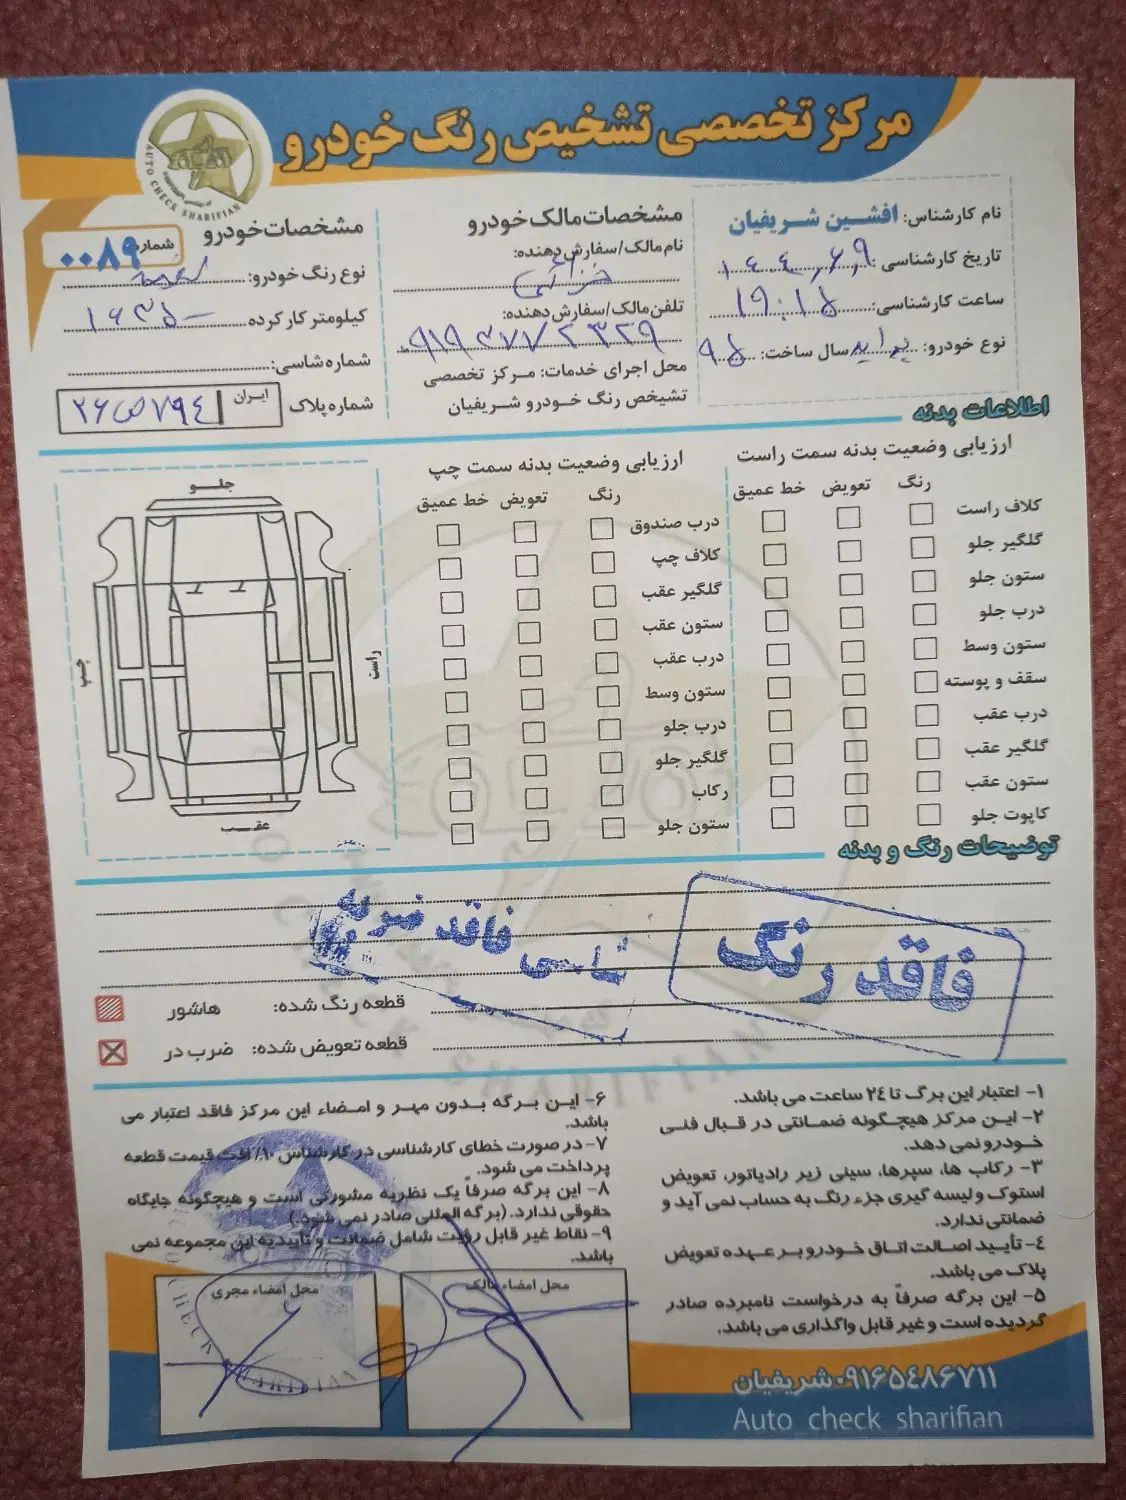 مرکز تخصصی تشخیص رنگ خودرو
AUTO CHECK SHARIFIAN
نام کارشناس: افشین شریفیان
تاریخ کارشناسی:
ساعت کارشناسی: ۱۹:۱۵
نوع خودرو: پراید سال ساخت: ۹۵
مشخصات مالک خودرو
نام مالک/سفارش دهنده: خزائی
تلفن مالک/سفارش دهنده:
محل اجرای خدمات: مرکز تخصصی
تشیخص رنگ خودرو شریفیان
مشخصات خودرو
شماره ۰۰۸۹
نوع رنگ خودرو: سفید
کیلومتر کارکرده
شماره شاسی:
شماره پلاک ایران ۷۹۴ ص ۲۶
اطلاعات بدنه
ارزیابی وضعیت بدنه سمت راست
رنگ تعویض خط عمیق
کلاف راست
گلگیر جلو
ستون جلو
درب جلو
ستون وسط
سقف و پوسته
درب عقب
گلگیر عقب
ستون عقب
کاپوت جلو
ارزیابی وضعیت بدنه سمت چپ
رنگ تعویض خط عمیق
درب صندوق
کلاف چپ
گلگیر عقب
ستون عقب
درب عقب
ستون وسط
درب جلو
گلگیر جلو
رکاب
ستون جلو
جلو
راست
چپ
عقب
توضیحات رنگ و بدنه
فاقد رنگ
شاسی فاقد ضربه
قطعه رنگ شده: هاشور
قطعه تعویض شده: ضرب در
۱- اعتبار این برگ تا ۲۴ ساعت می باشد.
۲- این مرکز هیچگونه ضمانتی در قبال فنی
خودرو نمی دهد.
۳- رکاب ها، سپرها، سینی زیر رادیاتور، تعویض
استوک و لیسه گیری جزء رنگ به حساب نمی آید و
ضمانتی ندارد.
۴- تأیید اصالت اتاق خودرو بر عهده تعویض
پلاک می باشد.
۵- این برگه صرفاً به درخواست نامبرده صادر
گردیده است و غیر قابل واگذاری می باشد.
۶- این برگه بدون مهر و امضاء این مرکز فاقد اعتبار می
باشد.
۷- در صورت خطای کارشناسی در کارشناس ۱۰٪ افت قیمت قطعه
پرداخت می شود.
۸- این برگه صرفاً یک نظریه مشورتی است و هیچگونه جایگاه
حقوقی ندارد. (برگه المثنی صادر نمی شود.)
۹- نقاط غیر قابل رؤیت شامل ضمانت و تأییدیه این مجموعه نمی
باشد.
محل امضاء مالک
محل امضاء مجری
۰۹۱۶۵۴۸۶۷۱۱ شریفیان
Auto check sharifian